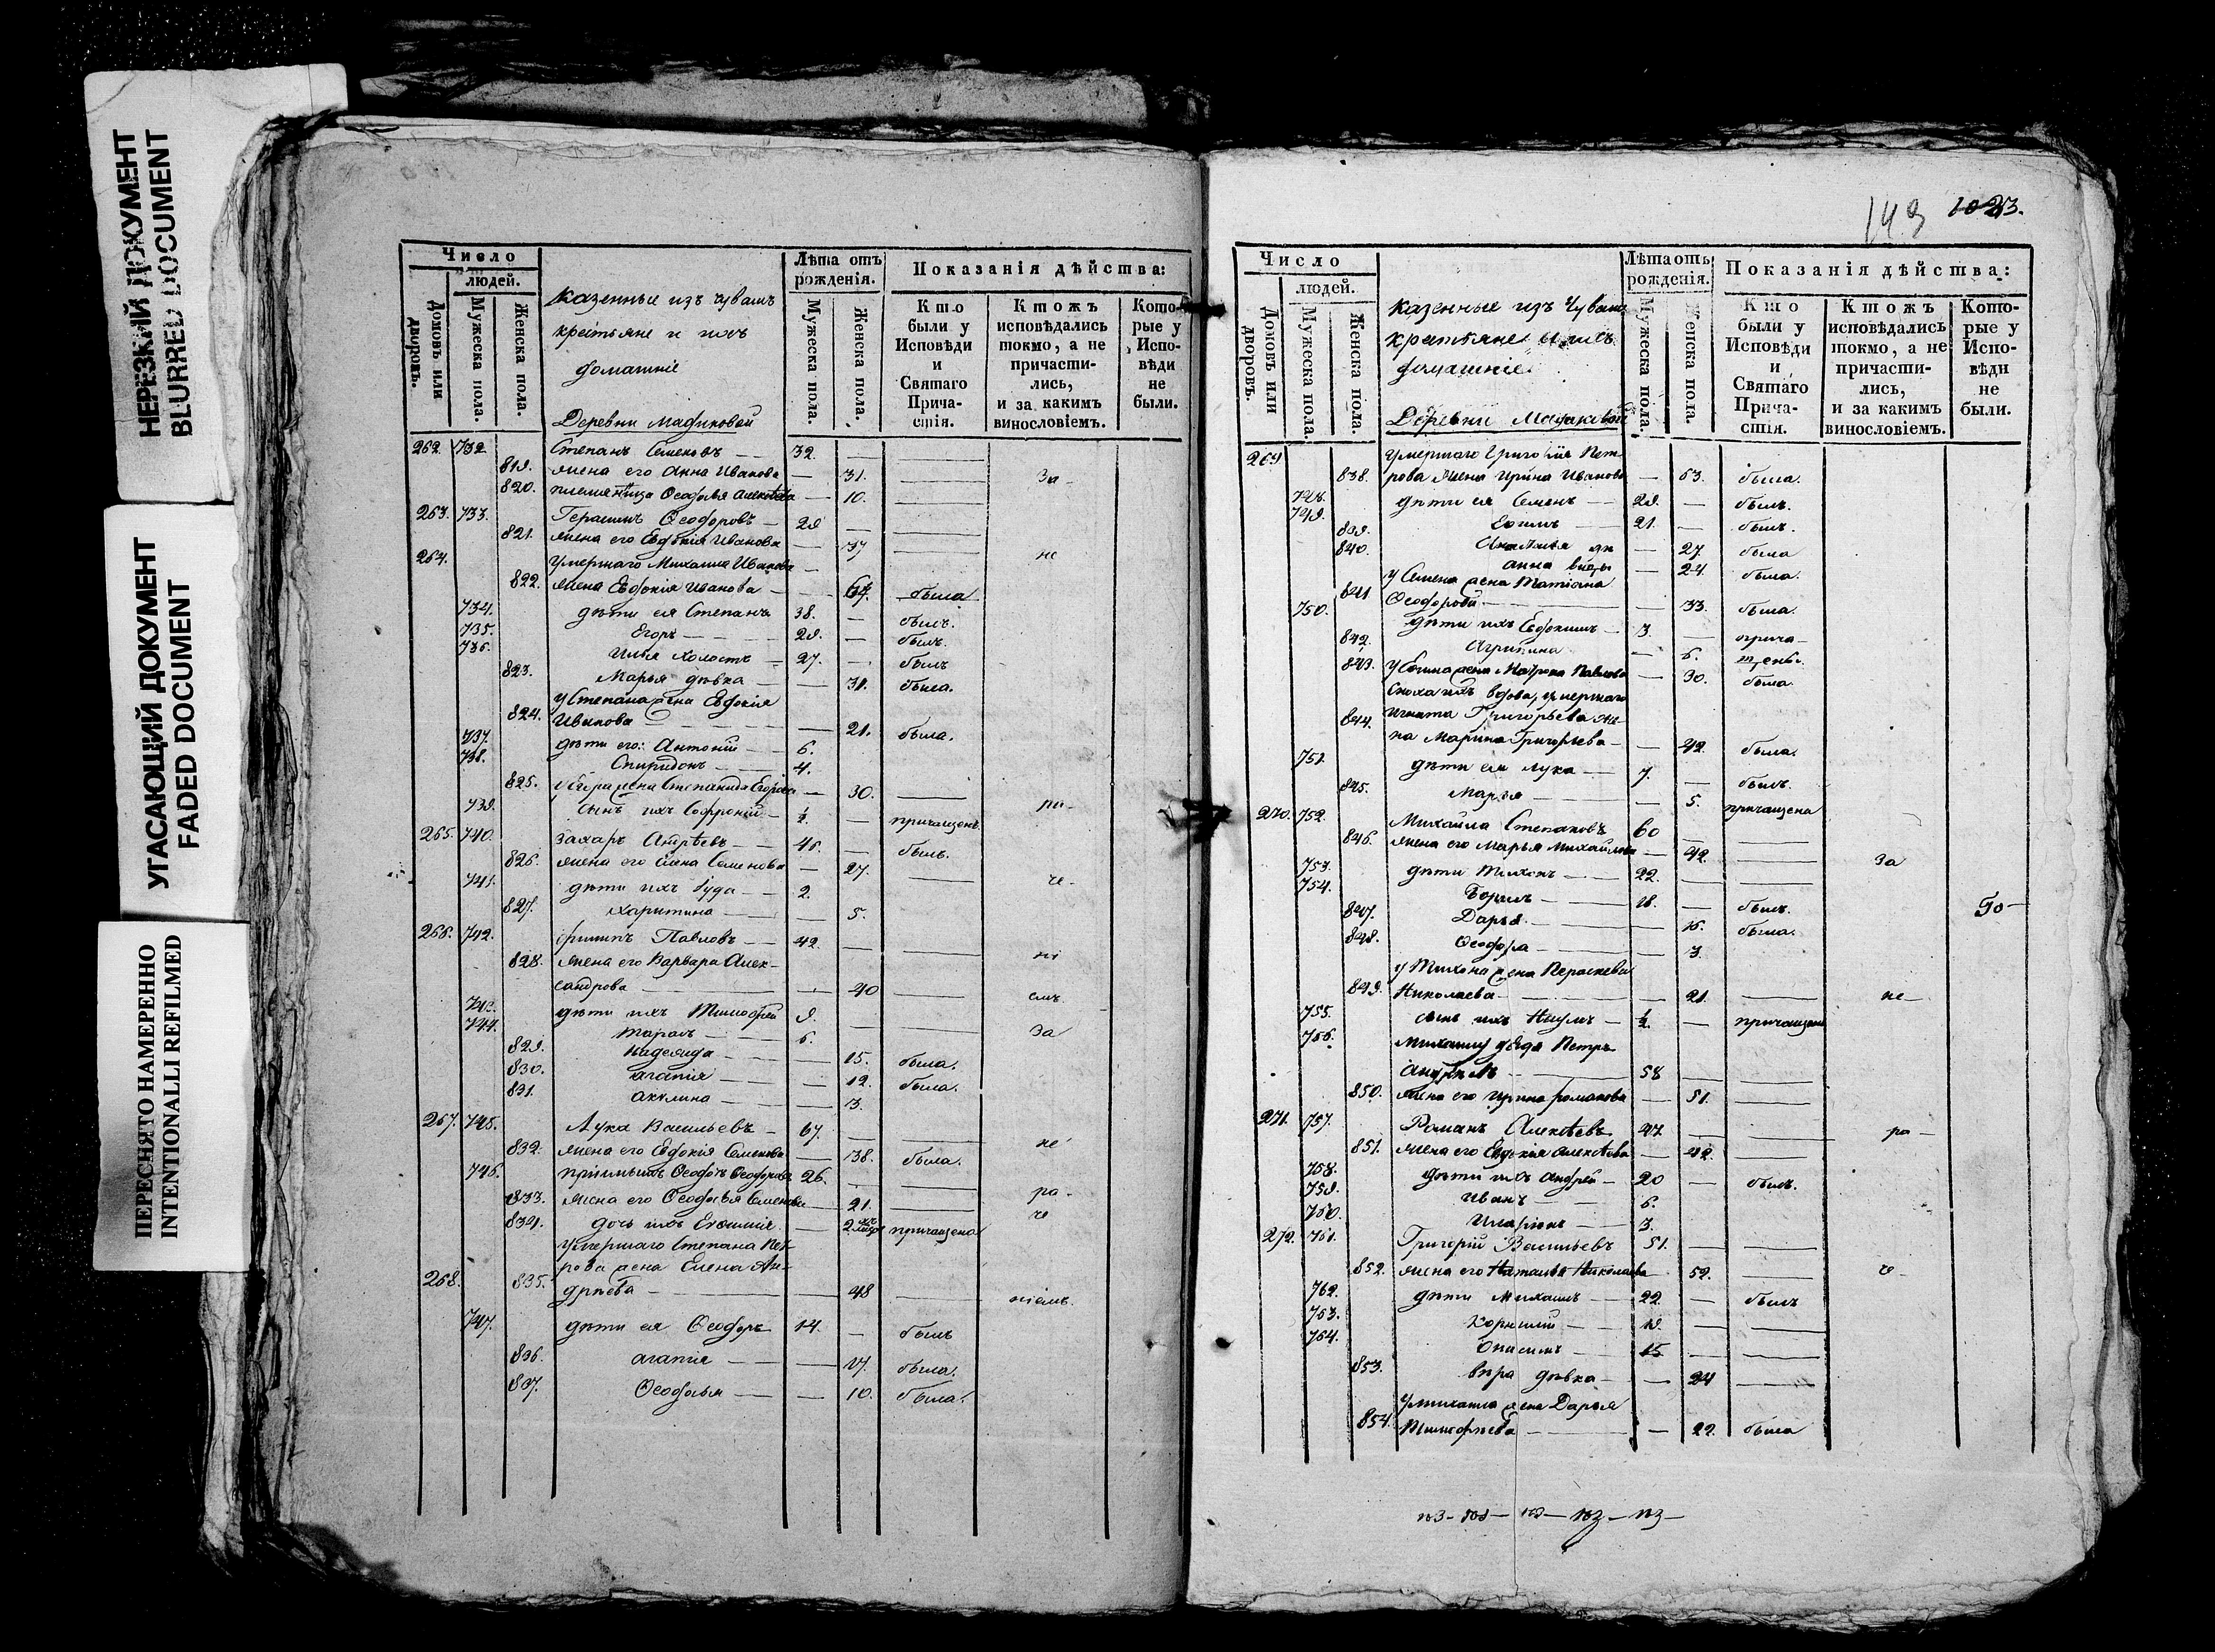 НЕРЕЗКИЙ ДОКУМЕНТ
BLURRED DOCUMENT
УГАСАЮЩИЙ ДОКУМЕНТ
FADED DOCUMENT
ПЕРЕСНЯТО НАМЕРЕННО
INTENTIONALLI REFILMED
Число
людей.
Домовъ или дворовъ.
Мужеска пола.
Женска пола.
казенные изъ чувашъ
крестьяне и ихъ
домашніе
Деревни
Лѣта отъ рожденія.
Мужеска пола.
Женска пола.
Показанія дѣйства:
Кто были у Исповѣди и Святаго Причастія.
Ктожъ исповѣдались токмо, а не причастились, и за какимъ винословіемъ.
Которые у Исповѣди не были.
262. 732. Степанъ Семеновъ 32.
819. жена его Анна Иванова 31. За-
820. племянница Ѳеодосья Алексѣева 10.
263. 733. Герасимъ Ѳеодоровъ 29
821. жена его Евдокія Иванова 37
264. умершаго Михаила Иванова не
822. жена Евдокія Иванова была
734. дѣти ея Степанъ 38. былъ.
735. Егоръ 29. былъ.
736. Илья холостъ 27. былъ
823. Марья дѣвка 31. была.
у Степана жена Евдокія
824. Иванова 21. была.
737. дѣти его: Антоній 6.
738. Спиридонъ 4.
825. жена Степанида Егорова 30.
739. сынъ ихъ Софроній ½ причащенъ
265. 740. Захаръ Андрѣевъ 46. былъ.
826. жена его Семенова 27.
741. дѣти ихъ 2. че-
827. Харитина 5.
266. 742. Филипъ Павловъ 42.
828. жена его Варвара Алек- ні
сандрова 40 емъ
743. дѣти ихъ Тимоѳей 9.
744. Тарасъ 6. За
829. Надежда 15. была.
830. Агапія 12. была.
831. Акилина 3.
267. 745. Лука Васильевъ 67. не
832. жена его Евдокія Семенова 38. была.
746. пріимышъ Ѳеодоръ Ѳеодоровъ 26.
833. жена его Ѳеодосья Семенова 21. ра-
834. дочь ихъ Евѳимія причащена че
умершаго Степана Пет-
рова жена Елена Ан-
268. 835. дрѣева 48 ніемъ.
747. дѣти ея Ѳеодоръ 14. былъ
836. Агапія 17. была.
837. Ѳеодосья 10. была.
149 1023.
Число
людей.
Домовъ или дворовъ.
Мужеска пола.
Женска пола.
казенные изъ Чувашъ
крестьяне и ихъ
домашніе
Деревни
Лѣта отъ рожденія.
Мужеска пола.
Женска пола.
Показанія дѣйства:
Кто были у Исповѣди и Святаго Причастія.
Ктожъ исповѣдались токмо, а не причастились, и за какимъ винословіемъ.
Которые у Исповѣди не были.
269 умершаго Григорія Пет-
838. рова жена Ирина Иванова 63. была.
748. дѣти ея Семенъ 29. былъ.
749. 21. былъ.
839. Анастасія 27. была
840. Анна 24. была.
у Семена жена Татіана
841 Ѳеодорова 33. была.
750. дѣти ихъ Евдокимъ 3. прича-
842. Агрипина 6. щены.
843. жена Матрона Павлова 30. была.
сноха ихъ вдова, умершаго
844. Игната Григорьева же-
на Марина Григорьева 42. была.
751. дѣти ея Лука 7. былъ.
845. Марья 5. причащена
270. 752. Михайла Степановъ 60
846. жена его Марья Михайлова 42. За
753. дѣти Тихонъ 22.
754. 18. былъ. Го-
847. Дарья 16. была.
848. Ѳеодора 3.
у Тихона жена Параскева
849. Николаева 21. не-
755. сынъ ихъ Наумъ ½ причащенъ
756. Михаилу дядя Петръ
58
850. жена его Ирина Романова 51.
271. 757. Романъ Алексѣевъ 47 ра-
851. жена его Евдокія Алексѣева 42.
758. дѣти ихъ Андрей 20 былъ.
759. Иванъ 6.
760. Иларіонъ 3.
272. 761. Григорій Васильевъ 51.
852. жена его Наталья Николаева 52. че-
762. дѣти Михаилъ 22 былъ
763. Корнилій 19.
764. Онисимъ 15
853. Вѣра дѣвка 24
у Михаила жена Дарья
854. Тимоѳеева 22. была